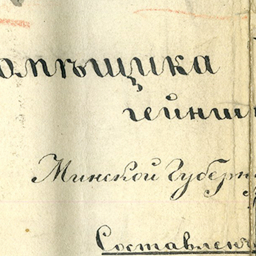 омѣщика
гейнш
Минской Губерн
Составлен